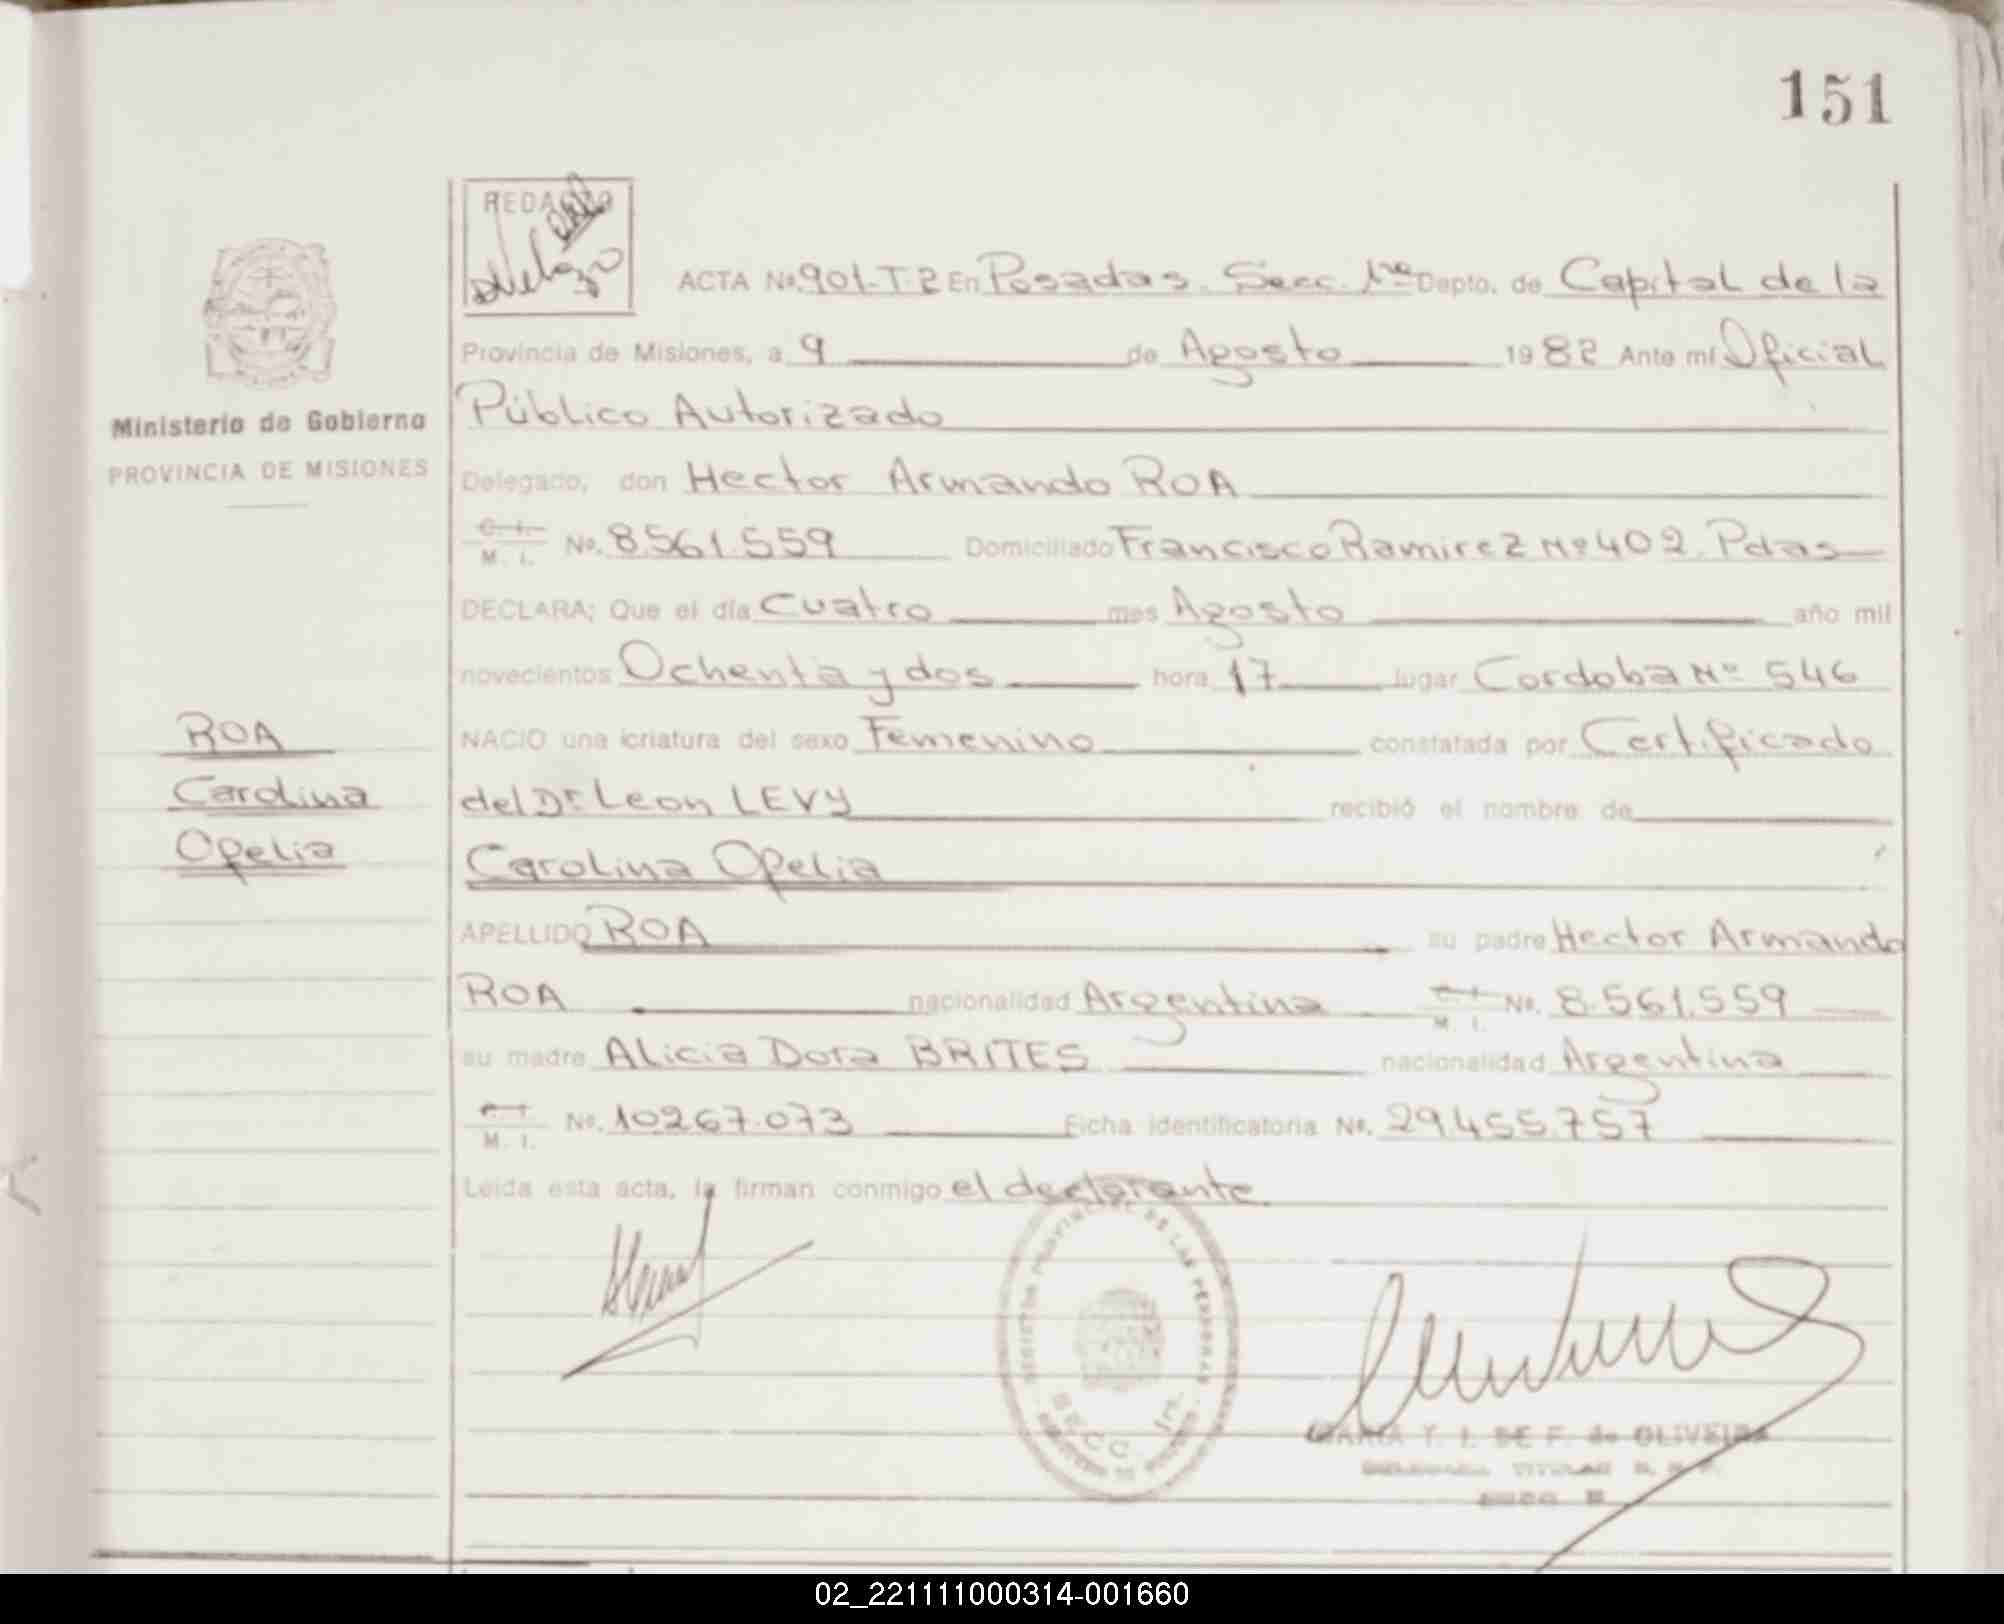 151
REDACTO
ACTA No. 901-T.2 En Posadas. Secc. 1ra Depto. de Capital de la
Provincia de Misiones, a 9 de Agosto 1982 Ante mí Oficial
Público Autorizado
Ministerio de Gobierno
PROVINCIA DE MISIONES
Delegado, don Hector Armando ROA
C. I. M. I. No. 8.561.559 Domiciliado Francisco Ramirez Nº 402. Pdas
DECLARA; Que el día Cuatro mes Agosto año mil
novecientos Ochenta y dos hora 17 lugar Cordoba Nº 546
NACIO una criatura del sexo Femenino constatada por Certificado
del Dr. Leon LEVY recibió el nombre de
Carolina Ofelia
ROA
Carolina
Ofelia
APELLIDO ROA su padre Hector Armando
ROA nacionalidad Argentina C. I. M. I. No. 8.561.559
su madre Alicia Dora BRITES nacionalidad Argentina
C. I. M. I. No. 10.267.073 Ficha identificatoria No. 29.455.757
Leida esta acta, la firman conmigo el declarante.
REGISTRO PROVINCIAL DE LAS PERSONAS
SECC. 1ra.
MARIA T. I. DE F. de OLIVEIRA
02_221111000314-001660